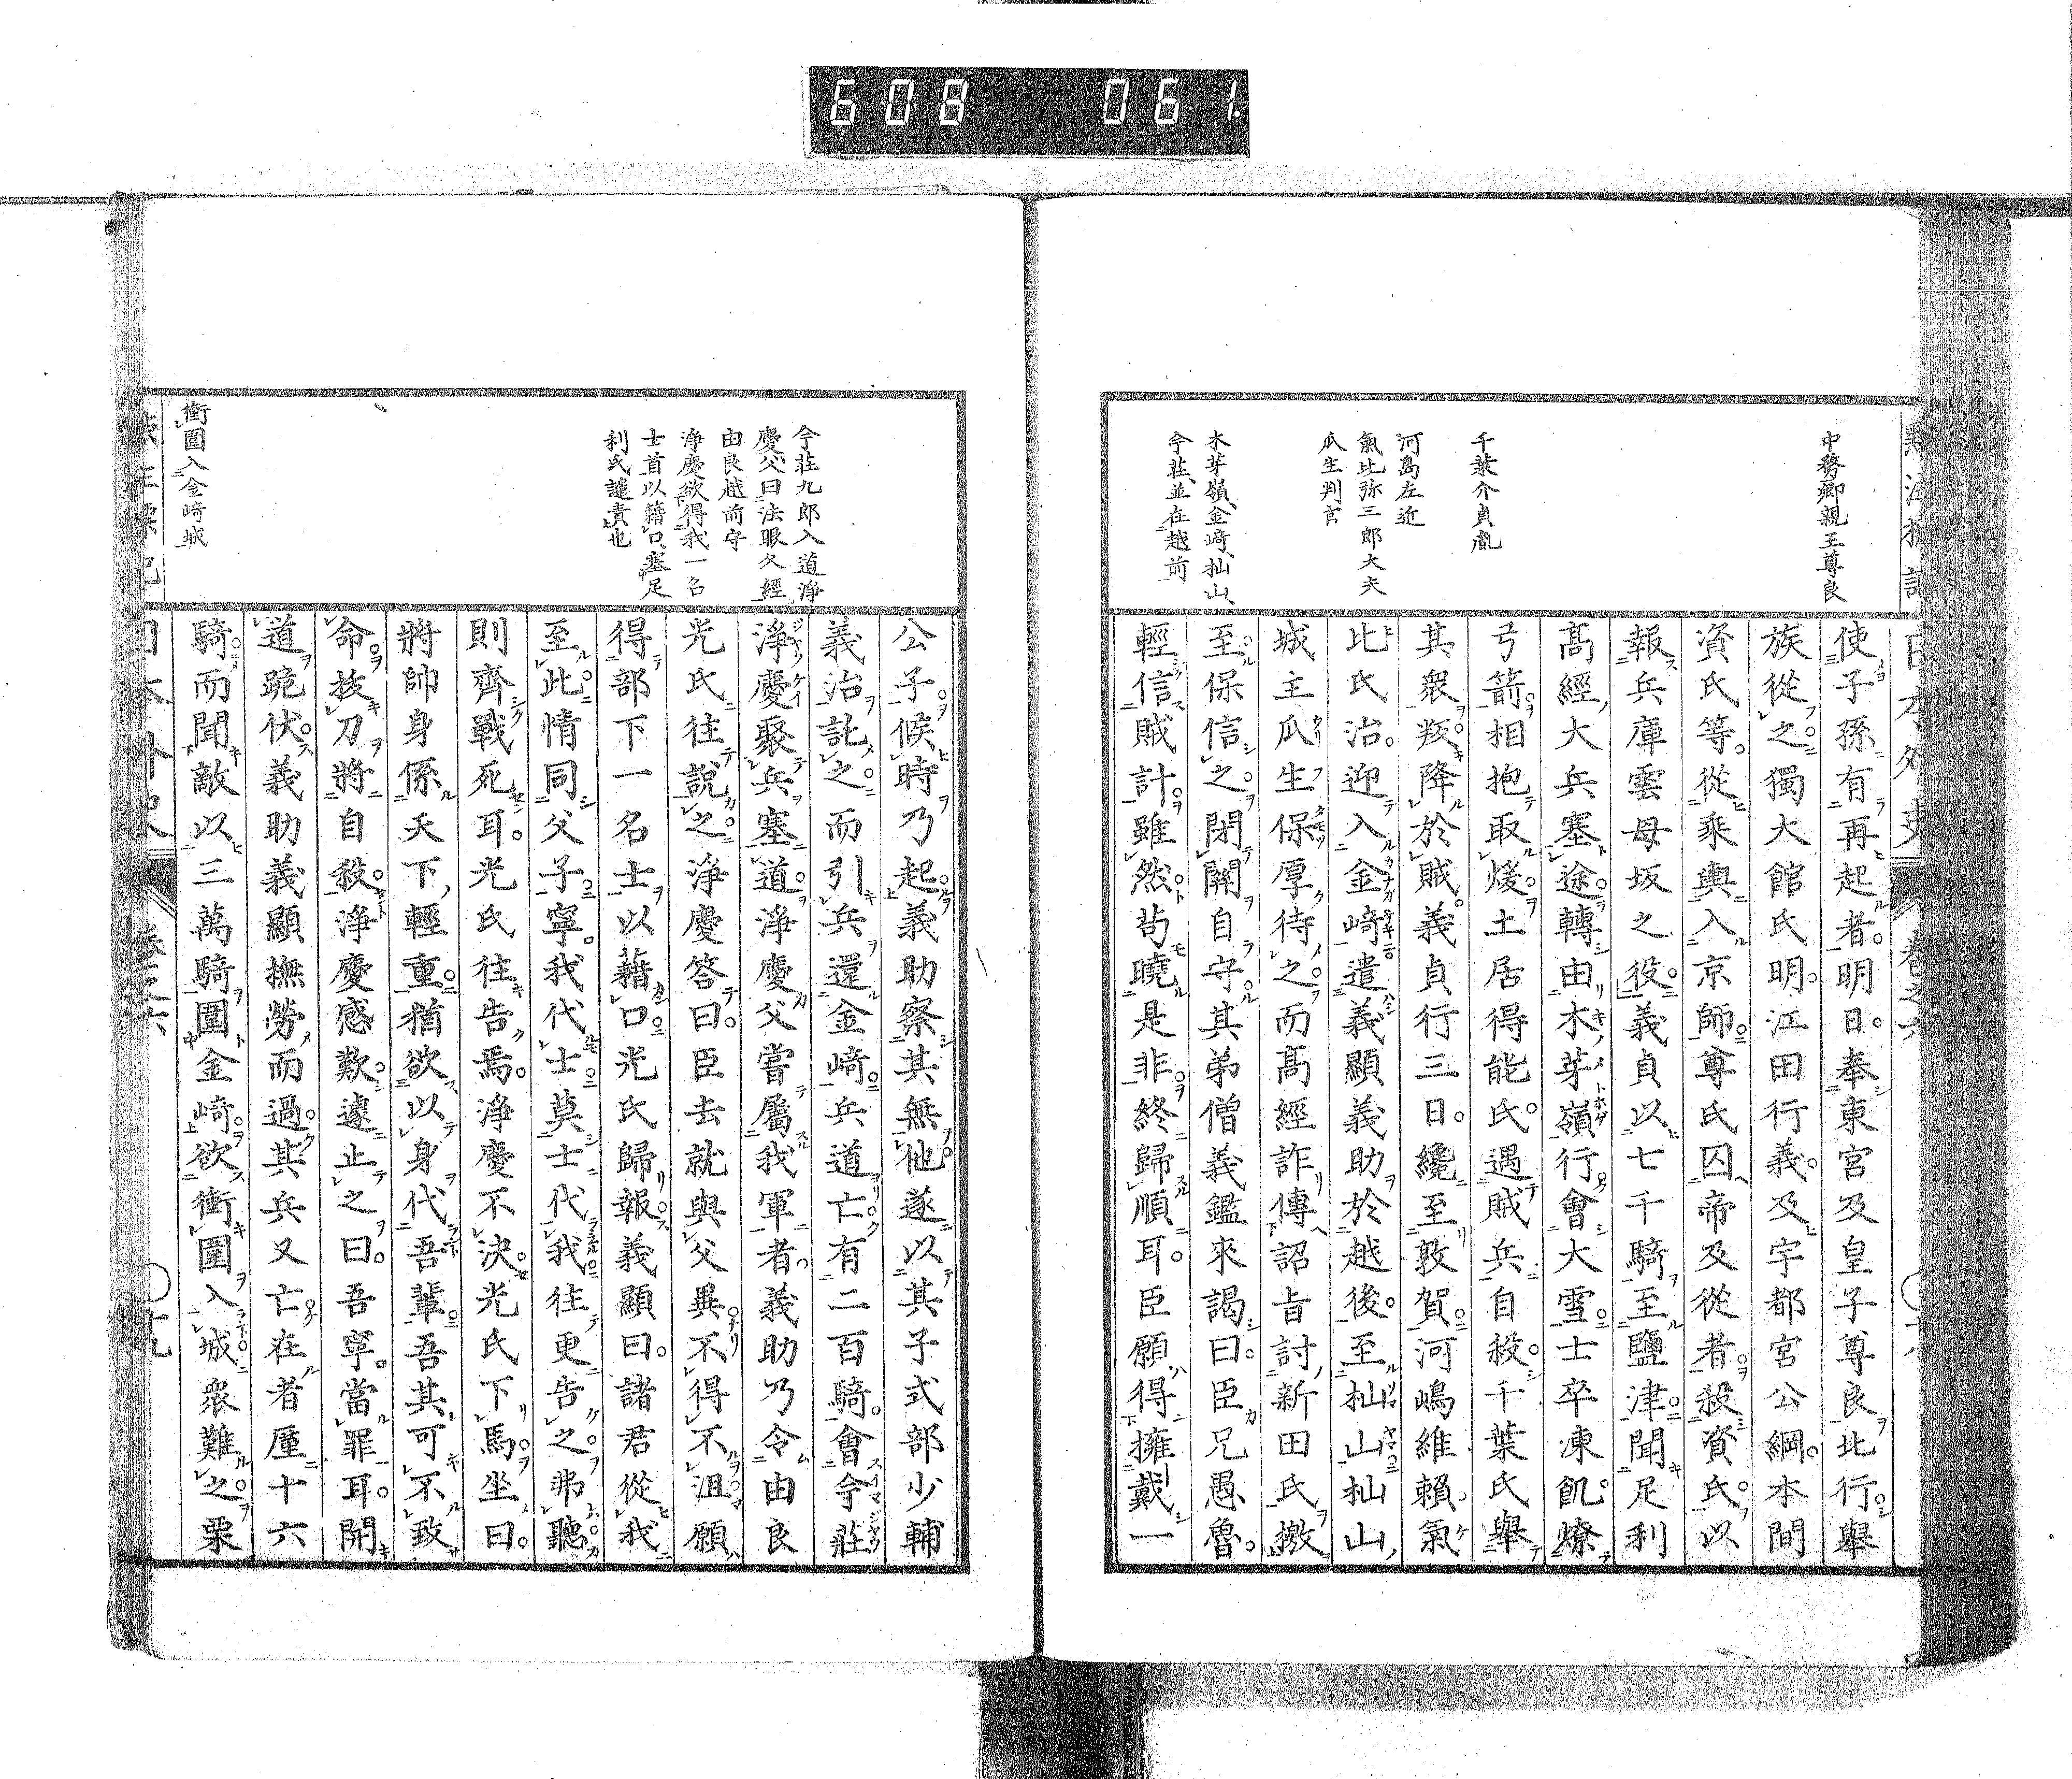 608 061
中務卿親王尊良
千葉介貞胤
河島左近
氣比弥三郎大夫
瓜生判官
木芽嶺、金崎、杣山、
今莊、並在越前
使子孫有再起者。明日。奉東宮及皇子尊良北行。舉
族從之。獨大館氏明。江田行義。及宇都宮公綱。本間
資氏等。從乘輿入京師。尊氏囚帝及從者。殺資氏。以
報兵庫雲母坂之役。義貞以七千騎至鹽津。聞足利
高經大兵塞途。轉由木芽嶺。行會大雪。士卒凍飢。燎
弓箭相抱取煖。土居得能氏。遇賊兵自殺。千葉氏舉
其衆叛降於賊。義貞行三日。纔至敦賀。河嶋維賴。氣
比氏治。迎入金崎。遣義顯義助於越後。至杣山。杣山
城主瓜生保厚待之。而高經詐傳詔旨討新田氏檄
至。保信之。閉關自守。其弟僧義鑑來謁曰。臣兄愚魯。
輕信賊計。雖然苟曉是非。終歸順耳。臣願得擁戴一
今莊九郎入道淨
慶父曰法眼久經
由良越前守
淨慶欲得我一名
士首以藉口、塞足
利氏譴責也
衝圍入金崎城
公子。候時乃起。義助察其無他。遂以其子式部少輔
義治託之。而引兵還金崎。兵道亡。有二百騎。會今莊
淨慶聚兵塞道。淨慶父嘗屬我軍者。義助乃令由良
光氏往說之。淨慶答曰。臣去就與父異。不得不沮。願
得部下一名士以藉口。光氏歸報。義顯曰。諸君從我
至此。情同父子。寧我代士。莫士代我。往更告之。弗聽
則齊戰死耳。光氏往告焉。淨慶不決。光氏下馬坐曰。
將帥身係天下輕重。猶欲以身代吾輩。吾其可不致
命。拔刀將自殺。淨慶感歎。遽止之曰。吾寧當罪耳。開
道跪伏。義助義顯撫勞而過。其兵又亡。在者厪十六
騎。而聞敵以三萬騎圍金崎。欲衝圍入城。衆難之。栗
卷之六